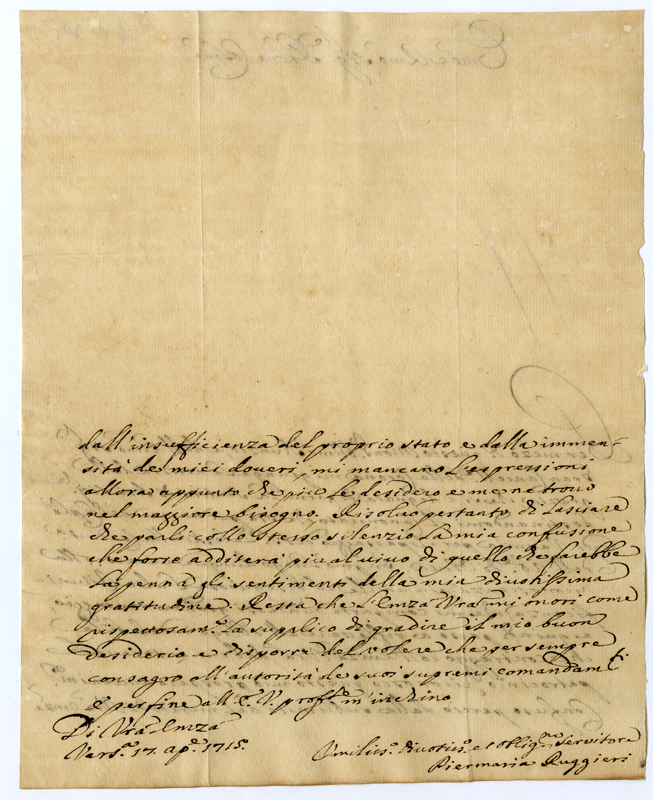 dall'insufficienza del proprio stato e dalla immen=
sità de miei doveri, mi mancano l'espressioni
allora appunto che più le desidero e me ne trovo
nel maggiore bisogno. Risolvo pertanto di lasciare
che parli collo stesso silenzio la mia confusione
che forse additerà più al vivo di quello che farebbe
la penna gli sentimenti della mia divotissima
gratitudine. Resta che l'Emza Vra mi onori come
rispettosamte. la supplico di gradire il mio buon
desiderio e disporre del volere che per sempre
consagro all'autorità de suoi supremi comandamti
e per fine all'E. V. profte. m'inchino
Di Vra Emza
Varsa. 17. apre. 1715.
Umilissº. Divotisº. et obligmo Servitore
Piermaria Ruggieri